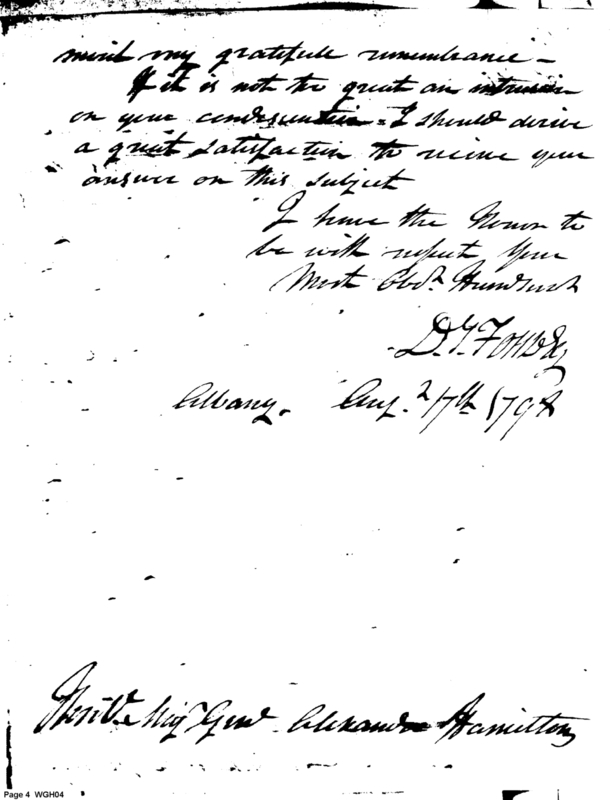 merit my gratefull remembrance –
If it is not to great an intrusion
on your condescention – I should derive
a great satisfaction to recieve your
answer on this subject
I have the Honor to
be with respect Your
Most Obdt. Hum Servt
D. T. Fonda
Albany. Augt. 17th 1798
Honbl. Majr. Genl. Alexander Hamilton
Page 4 WGH04